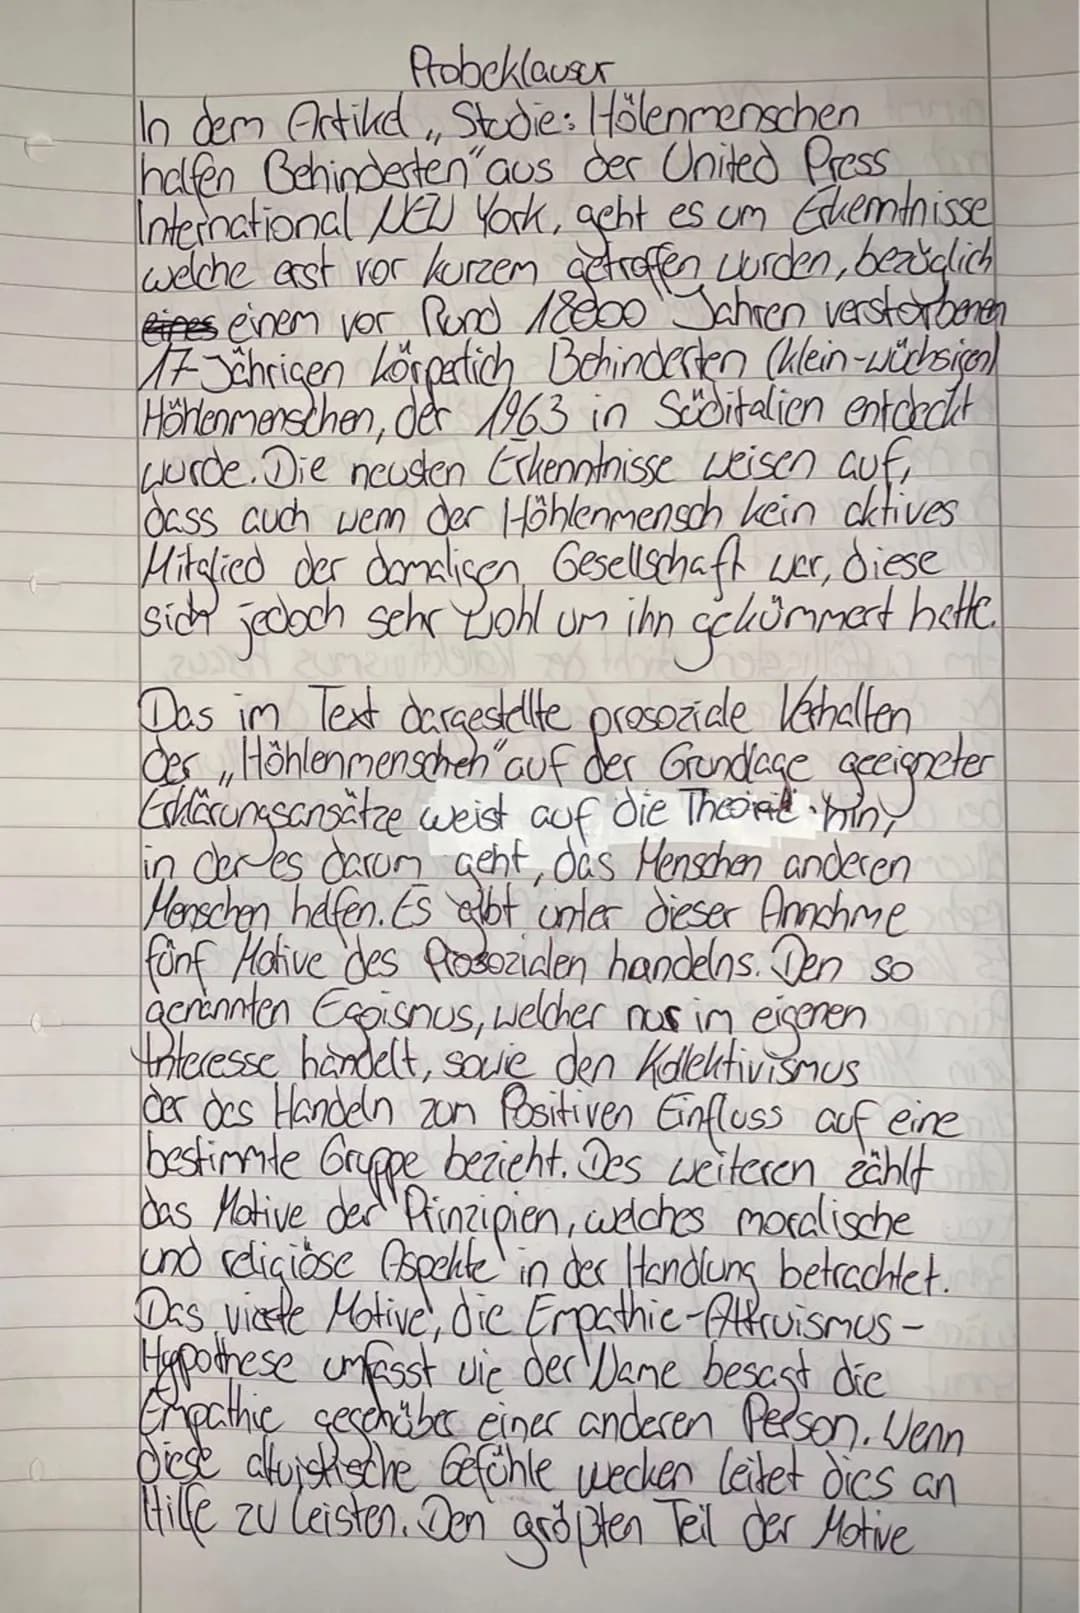 Probeklausur
In dem Artikel „Studie: Hölenmenschen
halfen Behinderten" aus der United Press
International NEW York, geht es um Erkenntnisse
welche erst vor kurzem getroffen wurden, bezüglich
eines einem vor Rund 18000 Jahren verstorbenen
17-Jährigen körperlich Behinderten (klein-wüchsigen)
Höhlenmenschen, der 1963 in Süditalien entdeckt
wurde. Die neusten Erkenntnisse weisen auf,
dass auch wenn der Höhlenmensch kein aktives
Mitglied der damaligen Gesellschaft war, diese
sich jedoch sehr wohl um ihn gekümmert hatte.
Das im Text dargestellte prosoziale Verhalten
der „Höhlenmenschen" auf der Grundlage geeigneter
Erklärungsansätze weist auf die Theorie hin,
in der es darum geht, das Menschen anderen
Menschen helfen. Es gibt unter dieser Annahme
fünf Motive des Prosozialen handelns. Den so
genannten Egoismus, welcher nur im eigenen
Interesse handelt, sowie den Kollektivismus
der das Handeln zum Positiven Einfluss auf eine
bestimmte Gruppe bezieht. Des weiteren zählt
das Motive der Prinzipien, welches moralische
und religiöse Aspekte in der Handlung betrachtet.
Das vierte Motive, die Empathie-Altruismus-
Hypothese umfasst wie der Name besagt die
Empathie gegenüber einer anderen Person. Wenn
diese altuistische Gefühle wecken leitet dies an
Hilfe zu leisten. Den größten Teil der Motive